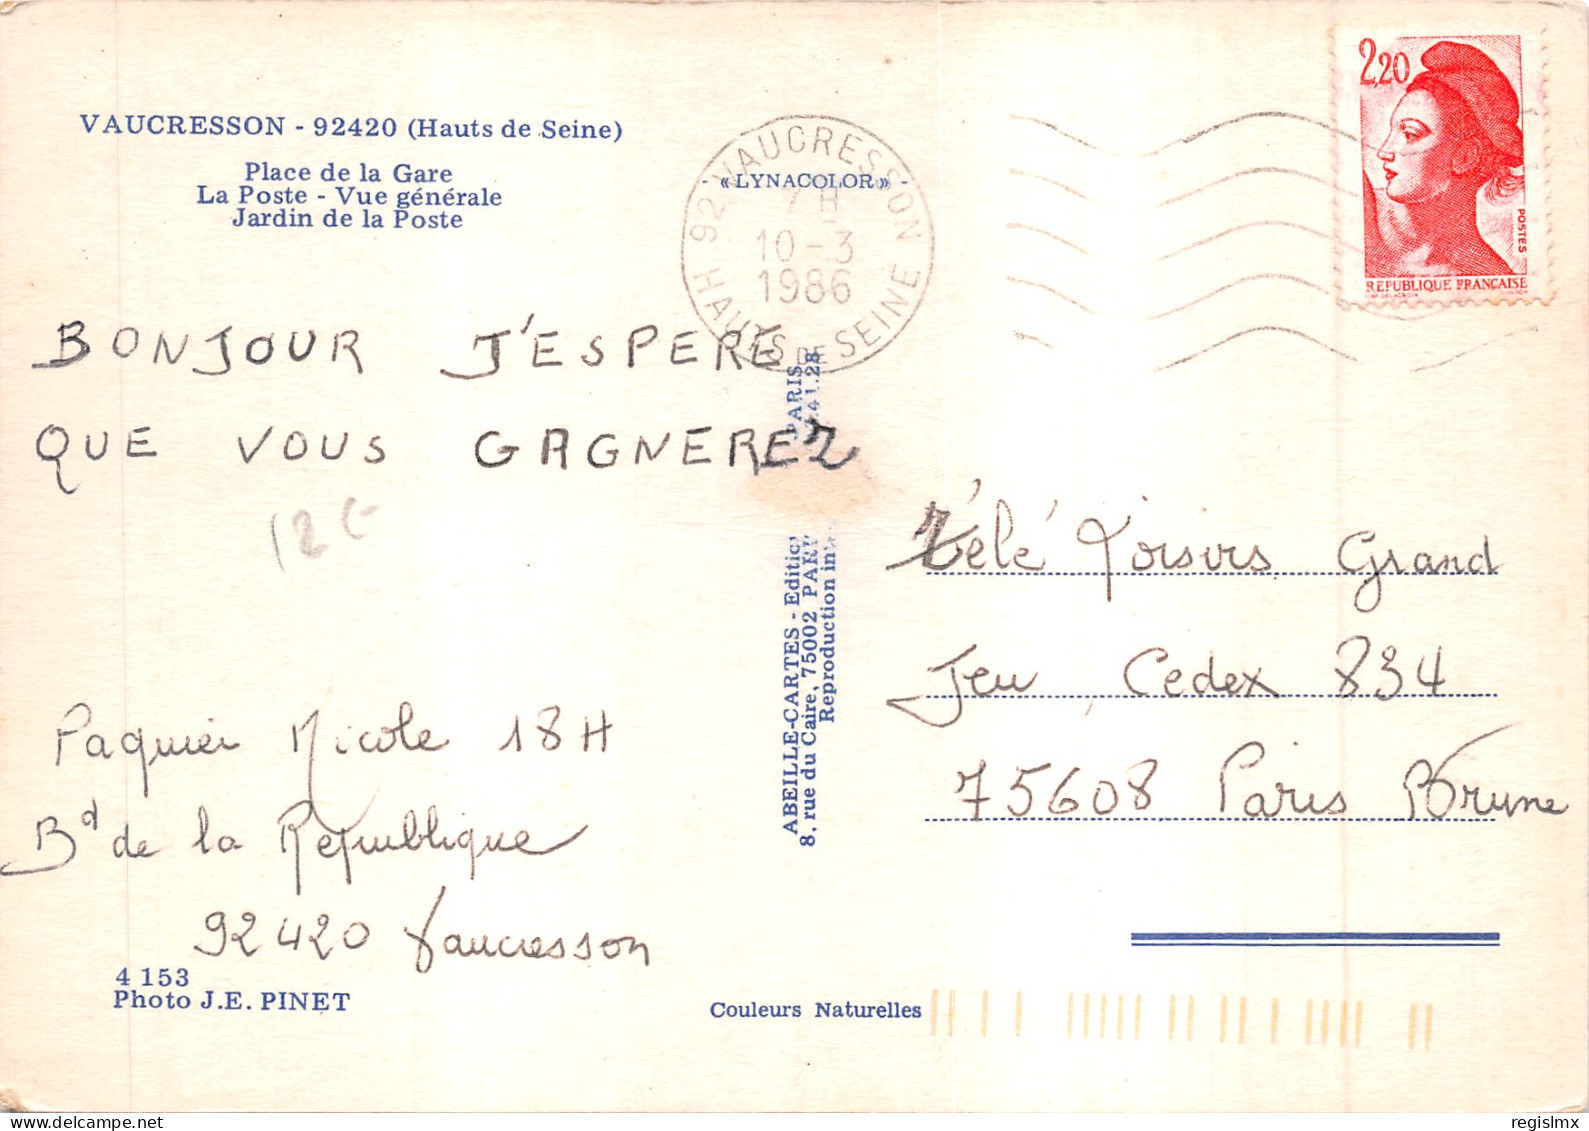 VAUCRESSON - 92420 (Hauts de Seine)
Place de la Gare
La Poste - Vue générale
Jardin de la Poste
«LYNACOLOR»
92 VAUCRESSON
7 H
10-3
1986
HAUTS DE SEINE
2,20
POSTES
REPUBLIQUE FRANÇAISE
BONJOUR J'ESPERE
QUE VOUS GAGNEREZ
Paquier Nicole 18H
Bd de la République
92420 Vaucresson
4 153
Photo J.E. PINET
PARIS
41.28
ABEILLE-CARTES - Editio
8, rue du Caire, 75002 PARI
Reproduction in
Télé Loisirs Grand
Jeu Cedex 834
75608 Paris Brune
Couleurs Naturelles
regislmx